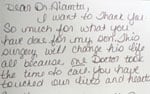 Dear Dr. Alamta,
I want to thank you
So much for what you
have done for my son. This
surgery will change his life
all because one Doctor took
the time to care. You have
touched our lives and hearts